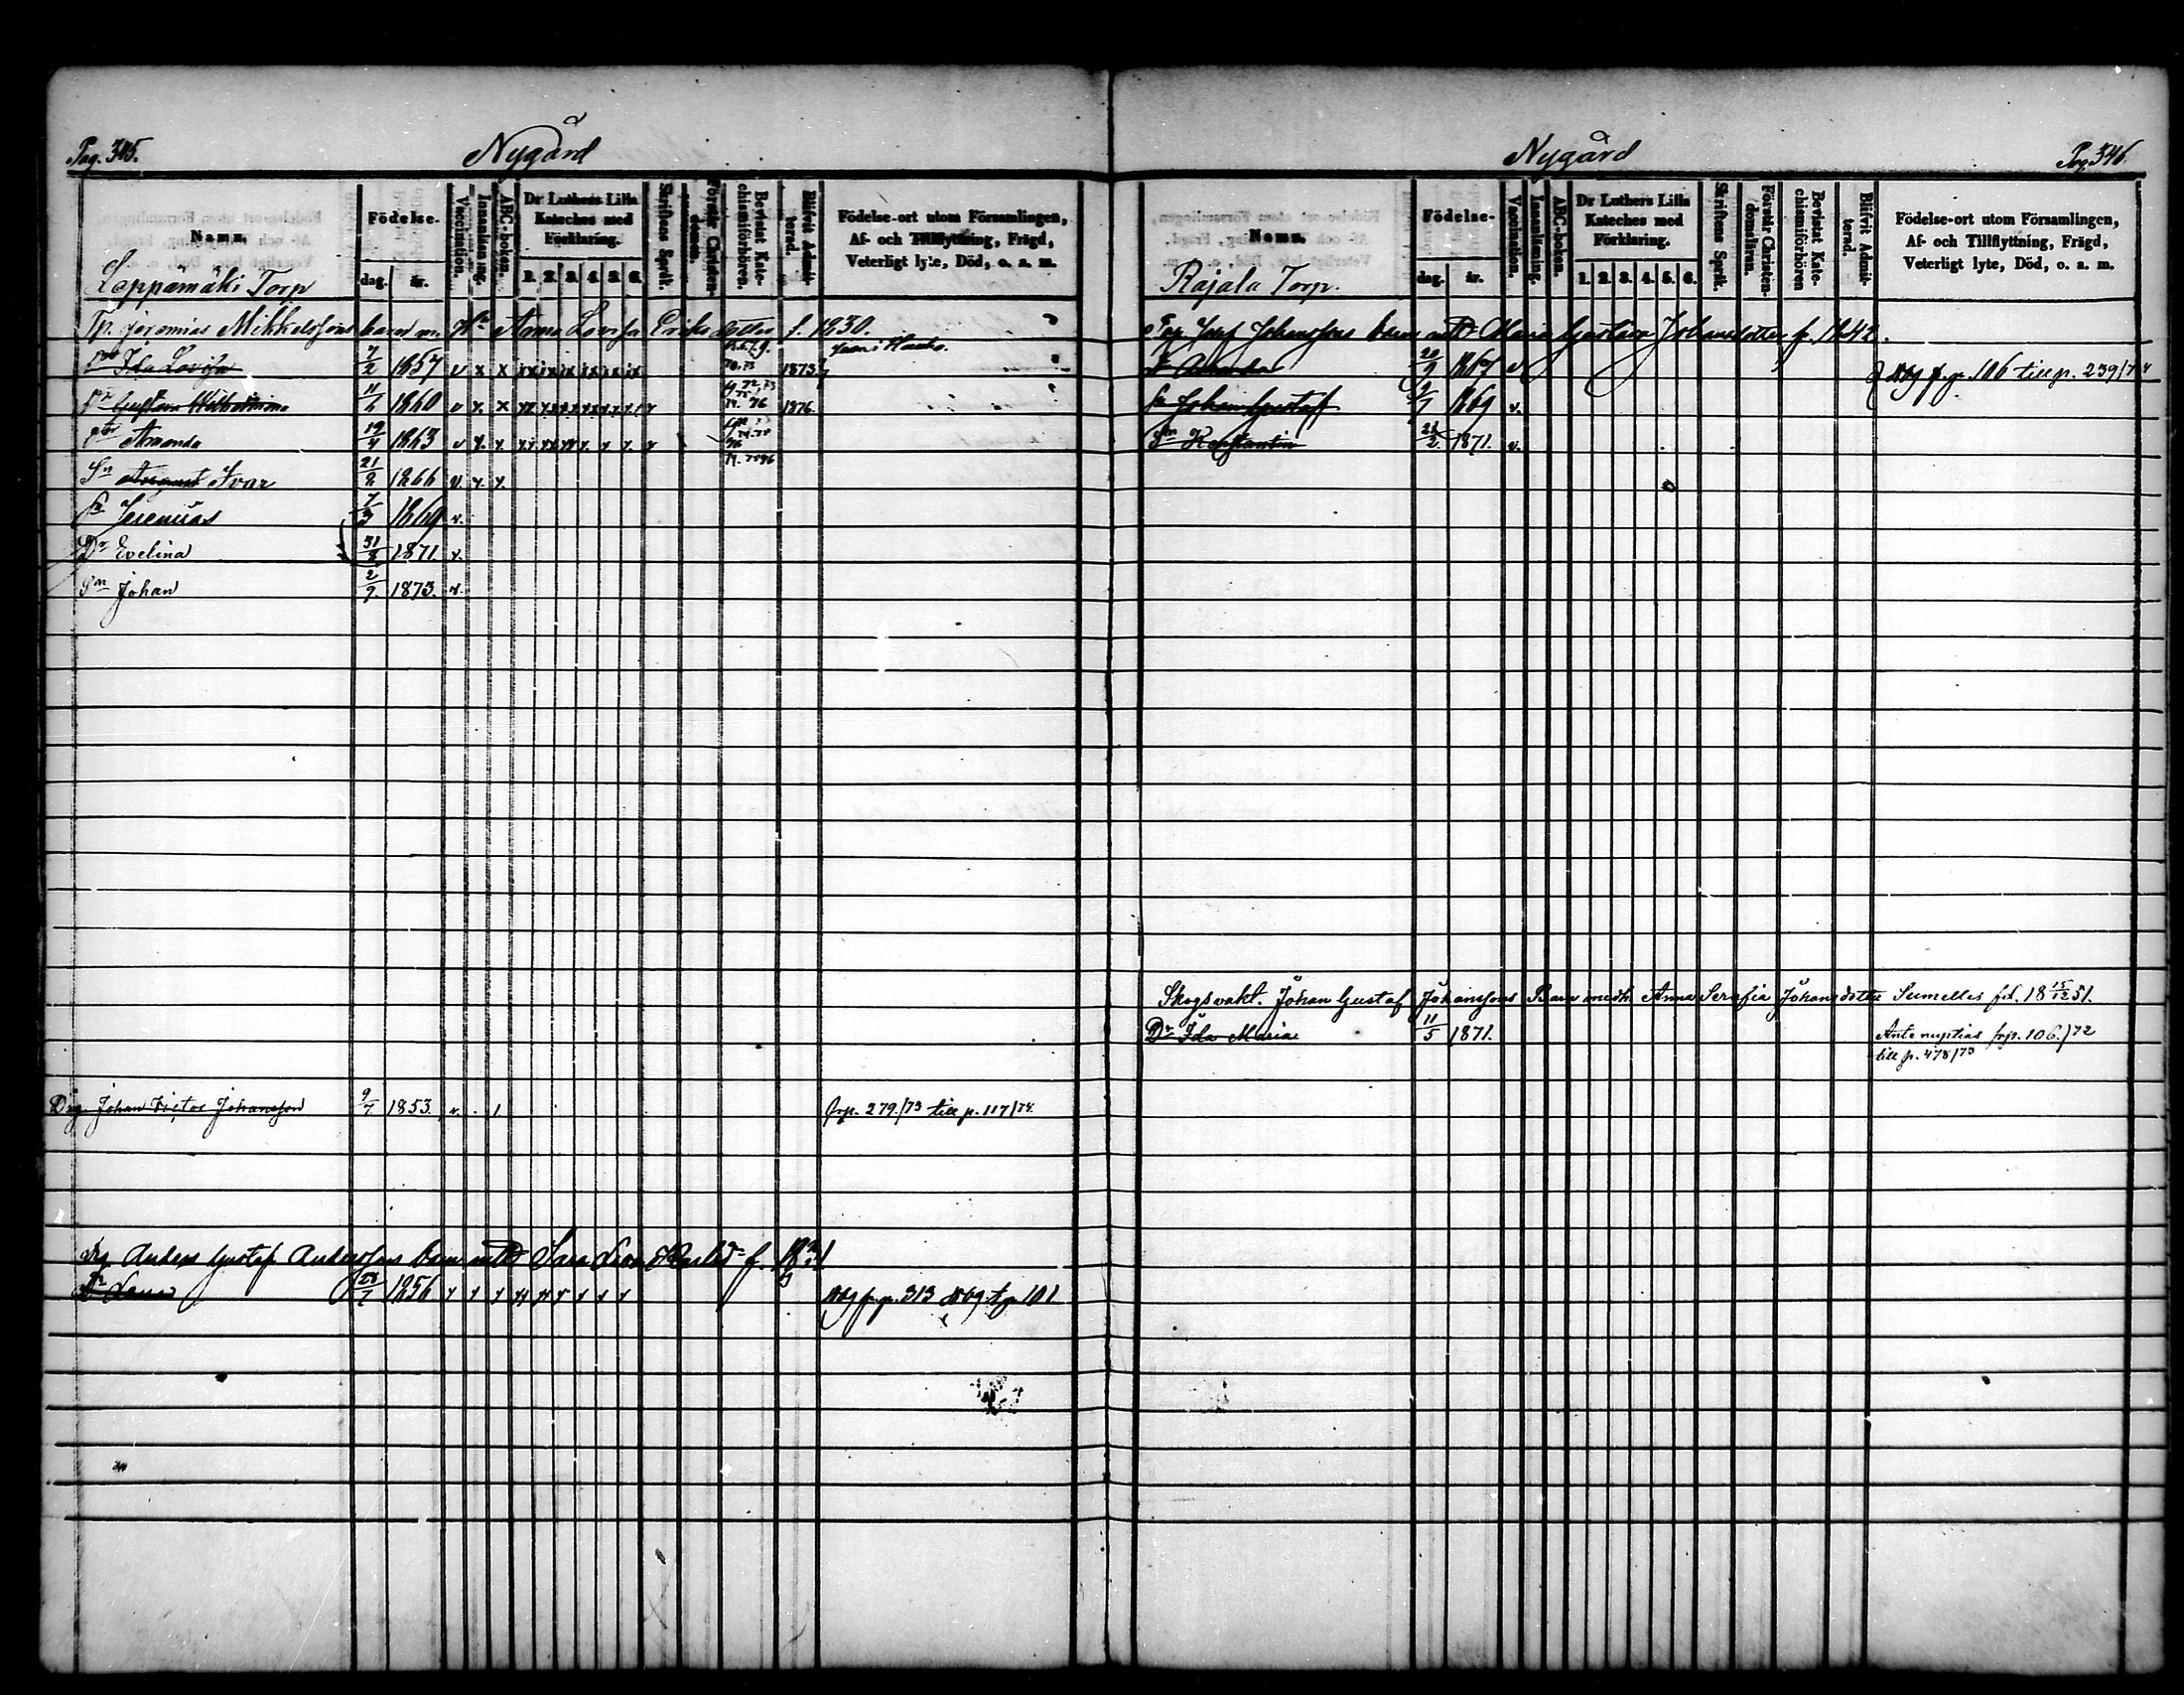 Pag. 345.
Nygård
Namn.
Födelse-
dag.
år.
Vaccination.
Innanläsning.
ABC-boken.
Dr Luthers Lilla Kateches med Förklaring.
1. 2. 3. 4. 5. 6.
Skriftens Språk.
Förstår Christen-domen.
Bevistat Kate-chismiförhören.
Blifvit Admit-terad.
Födelse-ort utom Församlingen,
Af- och Tillflyttning, Frägd,
Veterligt lyte, Död, o. a. m.
Leppämäki Torp
Tp. Jeremias Mikkelssons barn m. Anna Lovisa Eriksdotter f. 1830.
Ida Lovisa 7/2 1857 v x x 1873
Gustava Wilhelmina 11/6 1860 v x x 1876
Amanda 19/4 1863 v
Sn August Ivar 21/8 1866 v
Sn Jeremias 7/3 1869 v.
Dr Evelina 31/8 1871 v.
Sn Johan 2/9 1873. v.
Drg. Johan Victor Johansson 9/7 1853. v. frp. 279./73 till p. 117/74.
Drg Anders Gustaf Anderssons barn med Sara
Dr Lena 28/7 1856 fr p. 313 t p 101
Pag. 346
Nygård
Namn.
Födelse-
dag.
år.
Vaccination.
Innanläsning.
ABC-boken.
Dr Luthers Lilla Kateches med Förklaring.
1. 2. 3. 4. 5. 6.
Skriftens Språk.
Förstår Christen-domsläran.
Bevistat Kate-chismiförhören
Blifvit Admit-terad.
Födelse-ort utom Församlingen,
Af- och Tillflyttning, Frägd,
Veterligt lyte, Död, o. a. m.
Rajala Torp.
Johanssons barn med Maria Gustava Johansdotter f. 1842.
Amanda 20/9 1867 v p. 106 till p. 239/74
Sn Johan Gustaf 9/7 1869 v.
Sn Konstantin 21/2 1871. v.
Skogsvakt. Johan Gustaf Johanssons Barn medh. Anna Serafia Johansdotter Sumelles föd. 18 15/12 51.
Dr Ida Maria 11/5 1871. Ante nuptias frp. 106./72
till p. 478/73